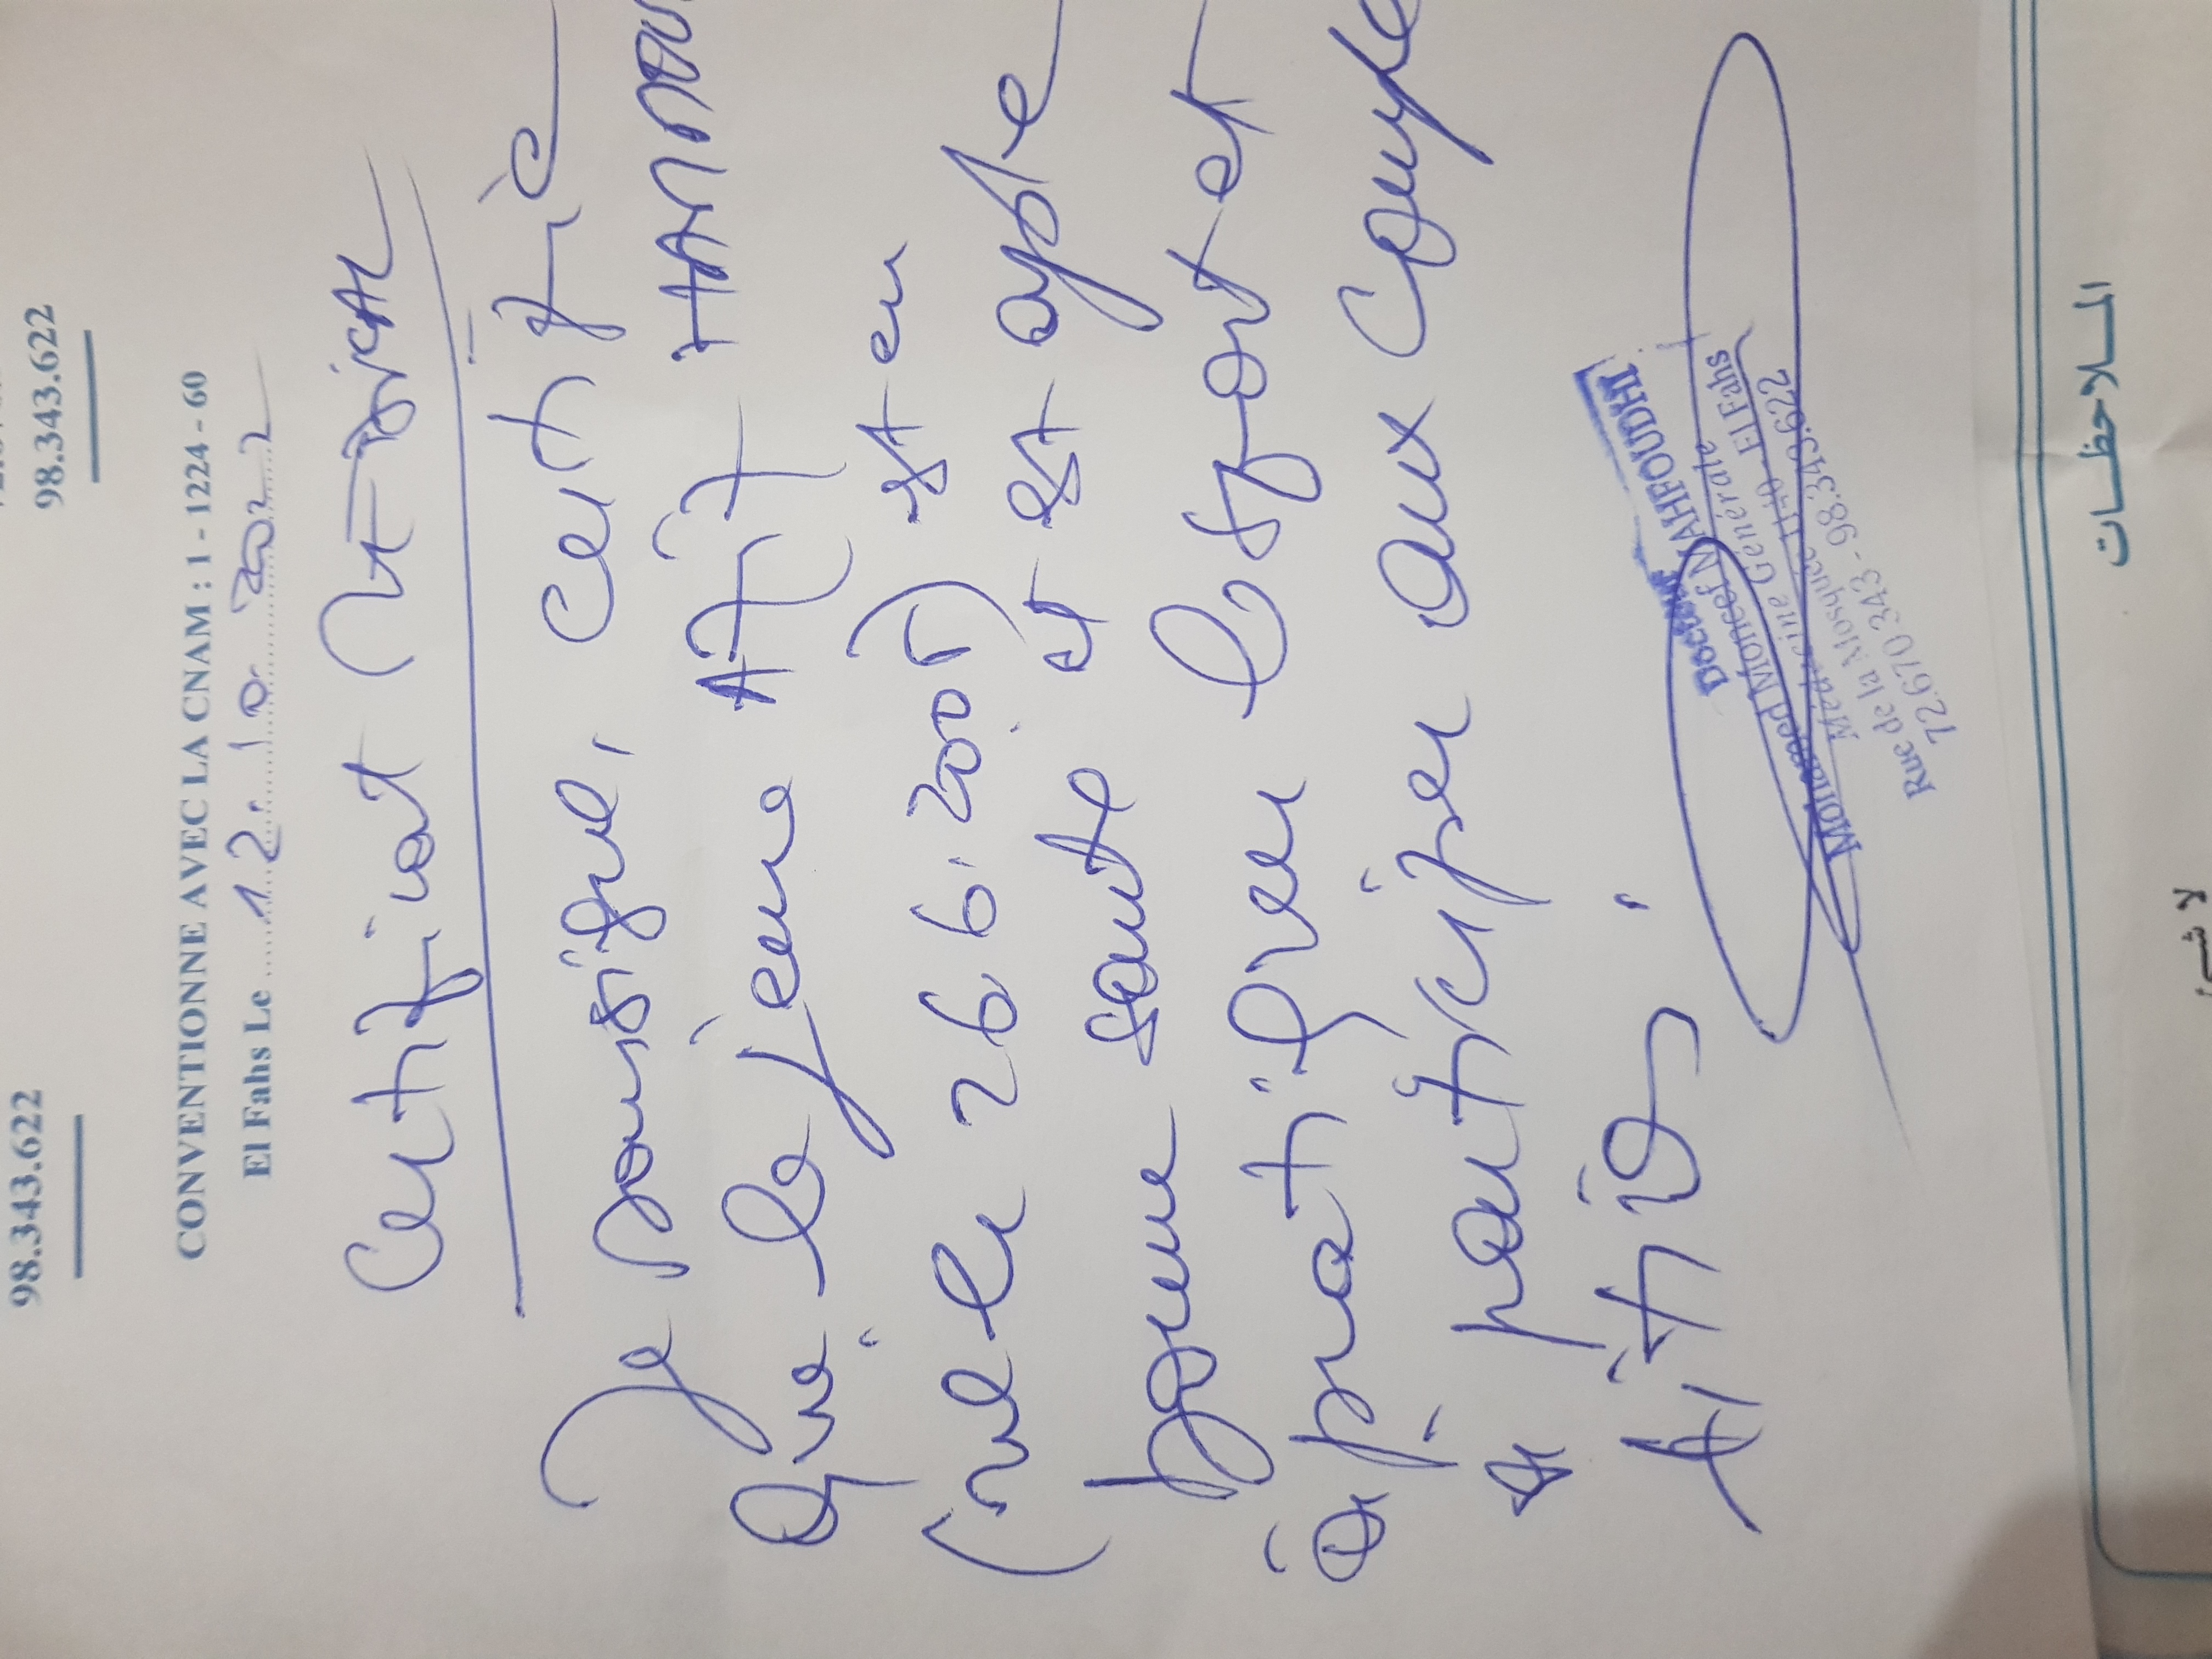 98.343.622
98.343.622
CONVENTIONNE AVEC LA CNAM : 1 - 1224 - 60
El Fahs Le 12.10.2022
Certificat Médical
Je soussigné, certifie
que le jeune
(né le 26.6.2009) est en
bonne santé et est apte
à pratiquer le sport et
à participer aux compé
titions.
Docteur
Mohamed Moncef MAHFOUDHI
Médecine Générale
Rue de la Mosquée 1140 - El Fahs
72.670.343 - 98.343.622
الملاحظات
لا شيء